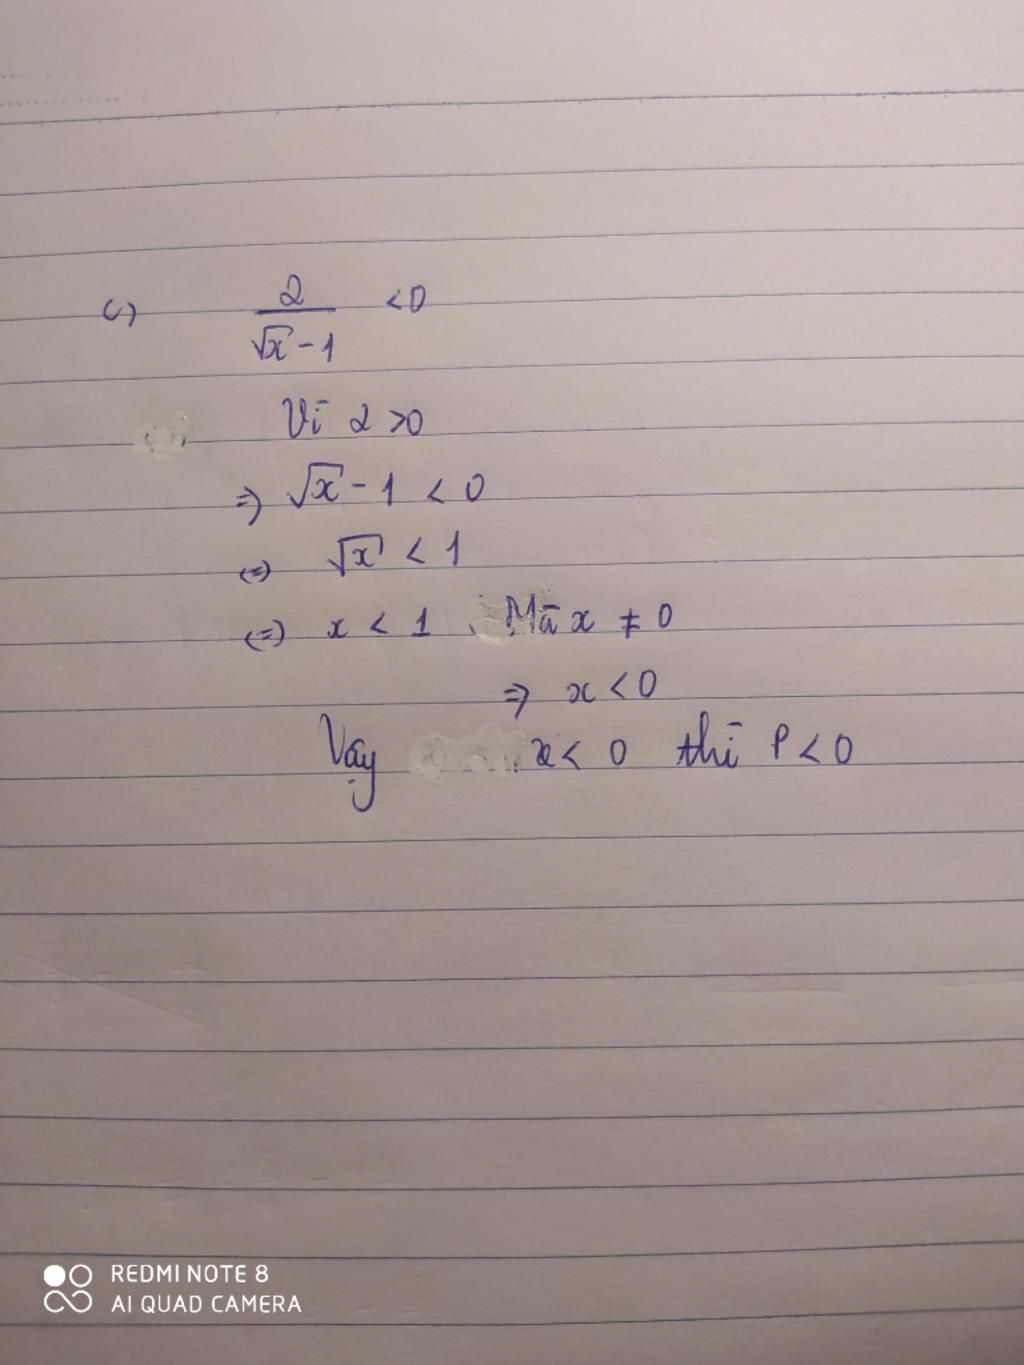 c) 2/(√x - 1) < 0
Vì 2 > 0
=> √x - 1 < 0
(=) √x < 1
(=) x < 1 . Mà x ≠ 0
=> x < 0
Vậy x < 0 thì P < 0
REDMI NOTE 8
AI QUAD CAMERA